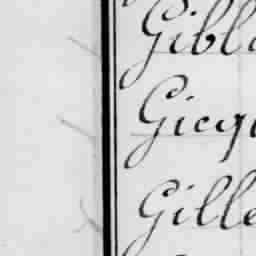 Gibl
Gicq
Gille